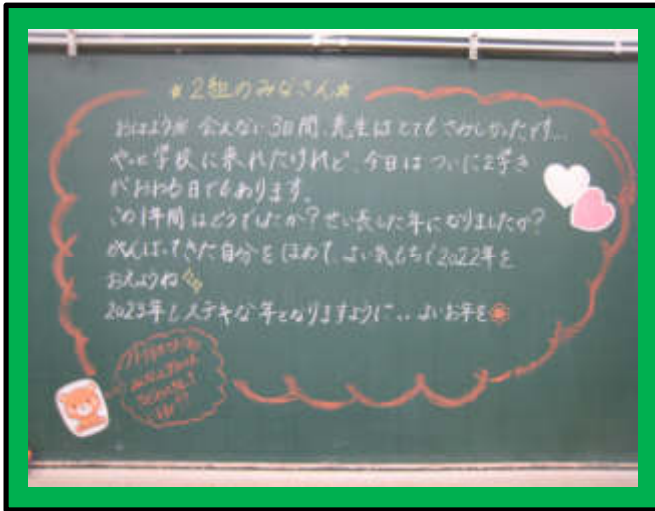 ★2組のみなさん★
おはよう 会えない3日間、先生はとてもさみしかったです...
やっと学校に来れたけれど、今日はついに2学き
がおわる日でもあります。
この1年間はどうでしたか？せい長した年になりましたか？
がんばってきた自分をほめて、よい気もちで2022年を
おえようね
2023年もステキな年となりますように... よいお年を